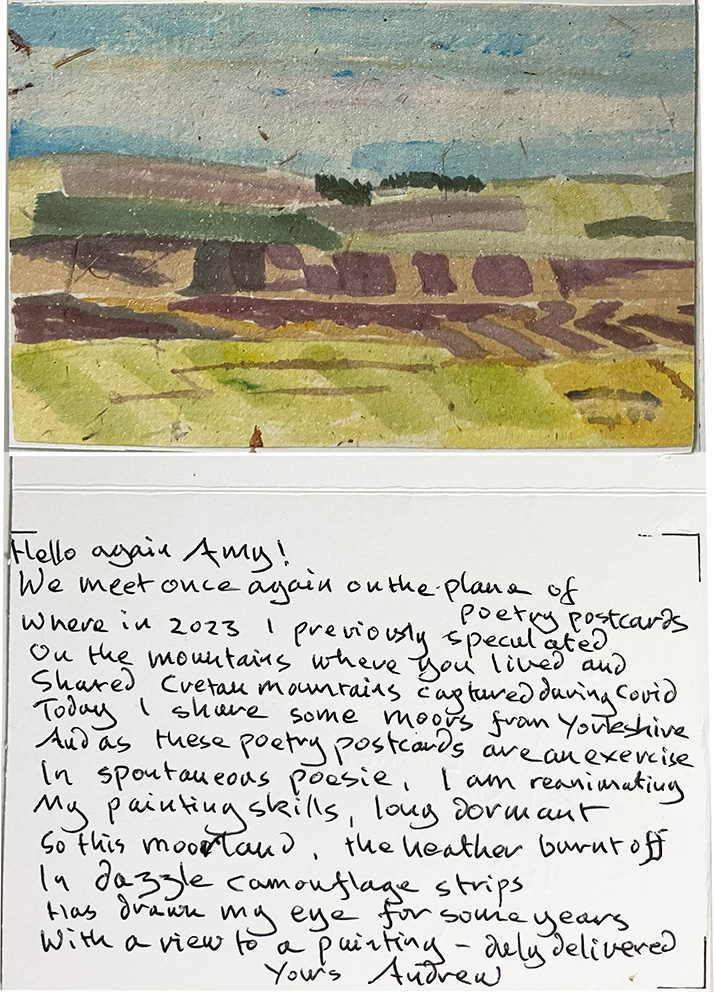 Hello again Amy!
We meet once again on the plane of
poetry postcards
Where in 2023 I previously speculated
On the mountains where you lived and
Shared Cretan mountains captured during Covid
Today I share some moors from Yorkshire
And as these poetry postcards are an exercise
In spontaneous poesie, I am reanimating
My painting skills, long dormant
So this moorland, the heather burnt off
In dazzle camouflage strips
Has drawn my eye for some years
With a view to a painting – duly delivered
Yours Andrew